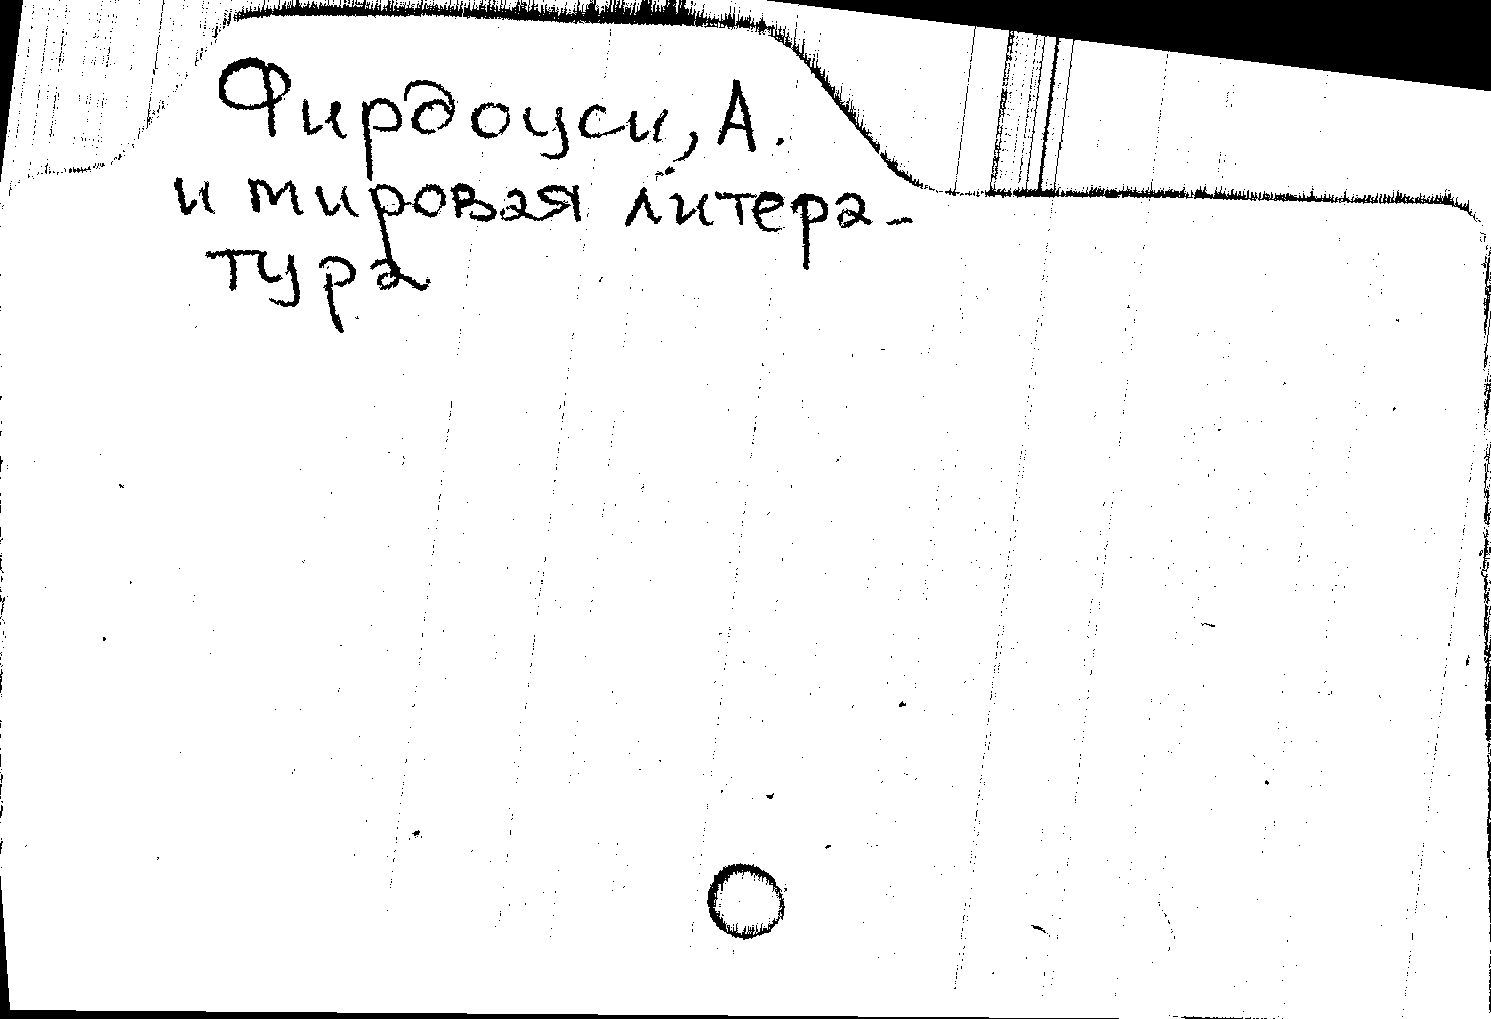 Фирдоуси, А.
и мировая литера-
тура